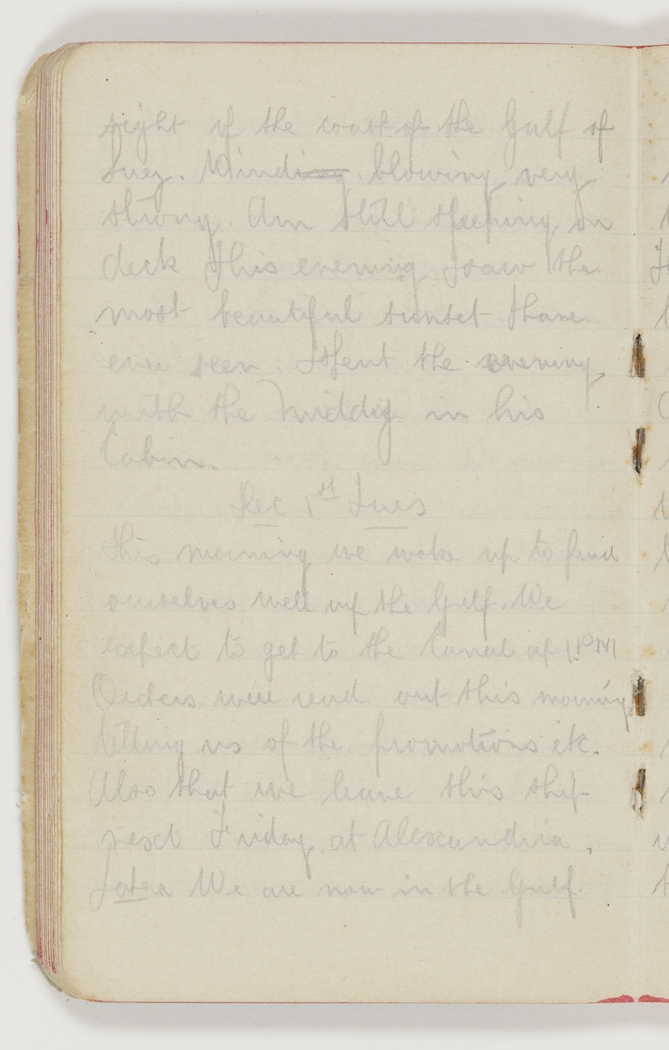 sight of the coast of the Gulf of
Suez. Winding blowing very
strong. Am still sleeping on
deck this evening I saw the
most beautiful sunset I have
ever seen. Spent the evening
with the Middy in his
Cabin.
Dec 1st Tues
This morning we woke up to find
ourselves well up the Gulf. We
expect to get to the Canal at 1.PM
Orders were read out this morning
telling us of the promotions etc.
Also that we leave this ship
next Friday at Alexandria.
Later We are now in the Gulf.